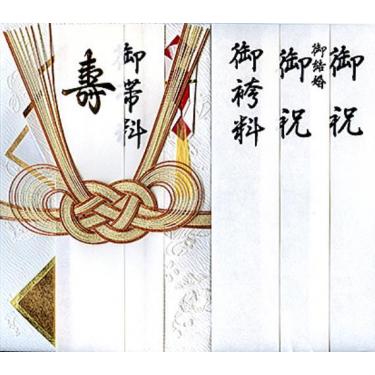 御祝
御結婚
御祝
御袴料
御帯料
寿